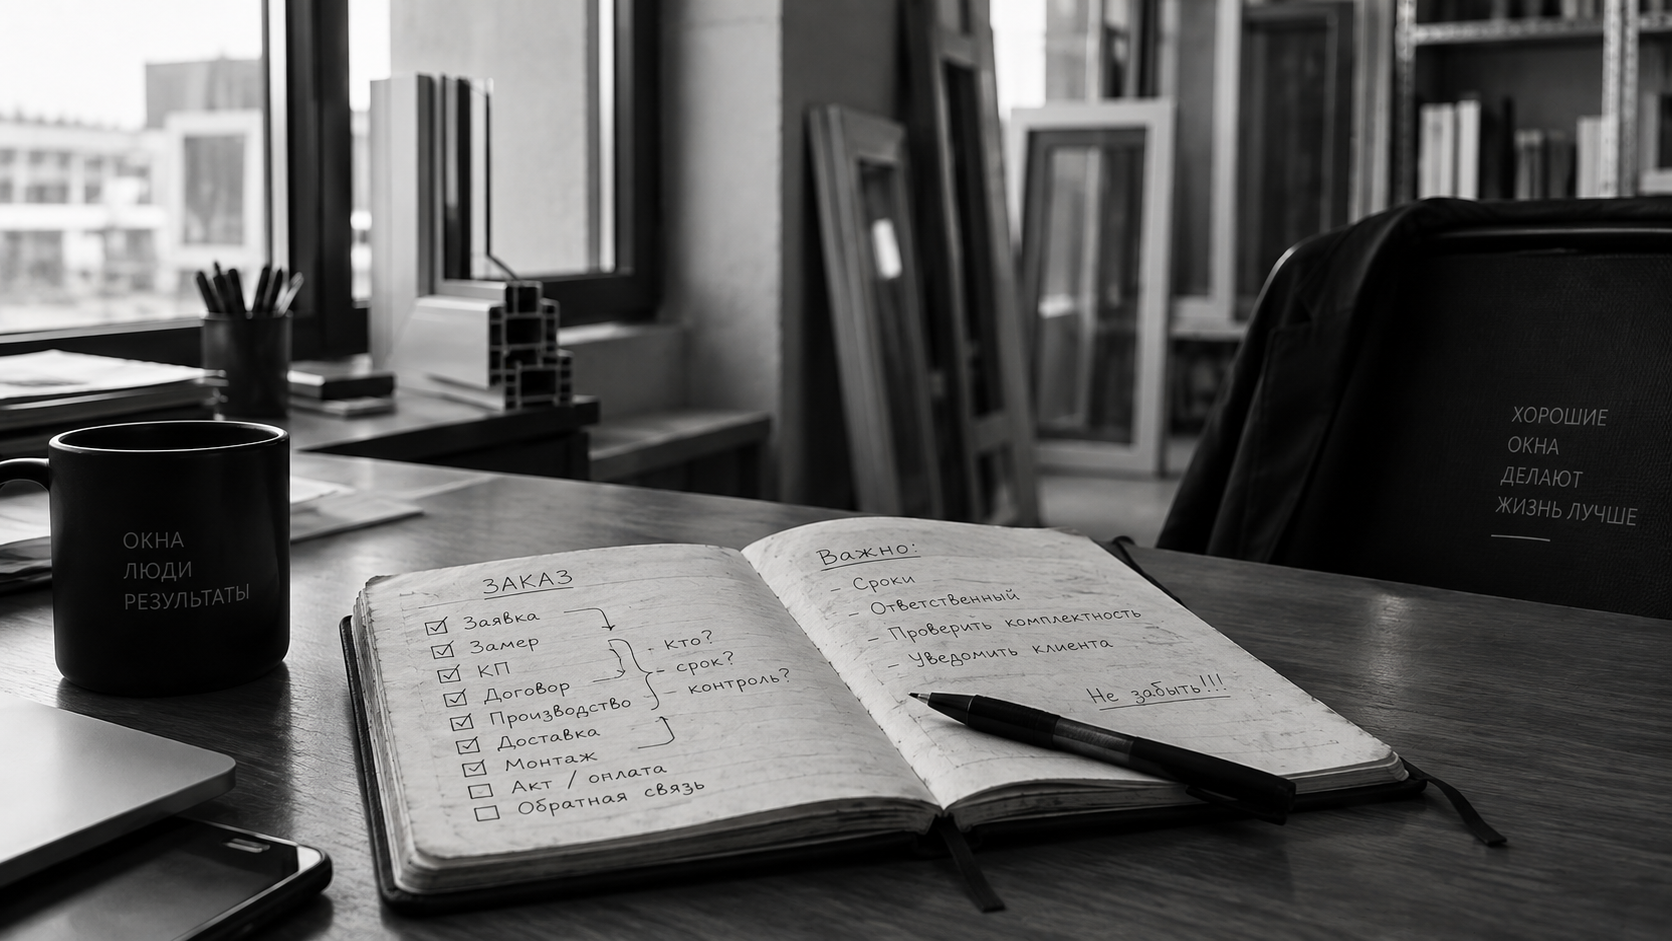 ОКНА
ЛЮДИ
РЕЗУЛЬТАТЫ
ЗАКАЗ
Заявка
Замер
КП
Договор
Производство
Доставка
Монтаж
Акт / оплата
Обратная связь
- кто?
- срок?
- контроль?
Важно:
- Сроки
- Ответственный
- Проверить комплектность
- Уведомить клиента
Не забыть!!!
ХОРОШИЕ
ОКНА
ДЕЛАЮТ
ЖИЗНЬ ЛУЧШЕ